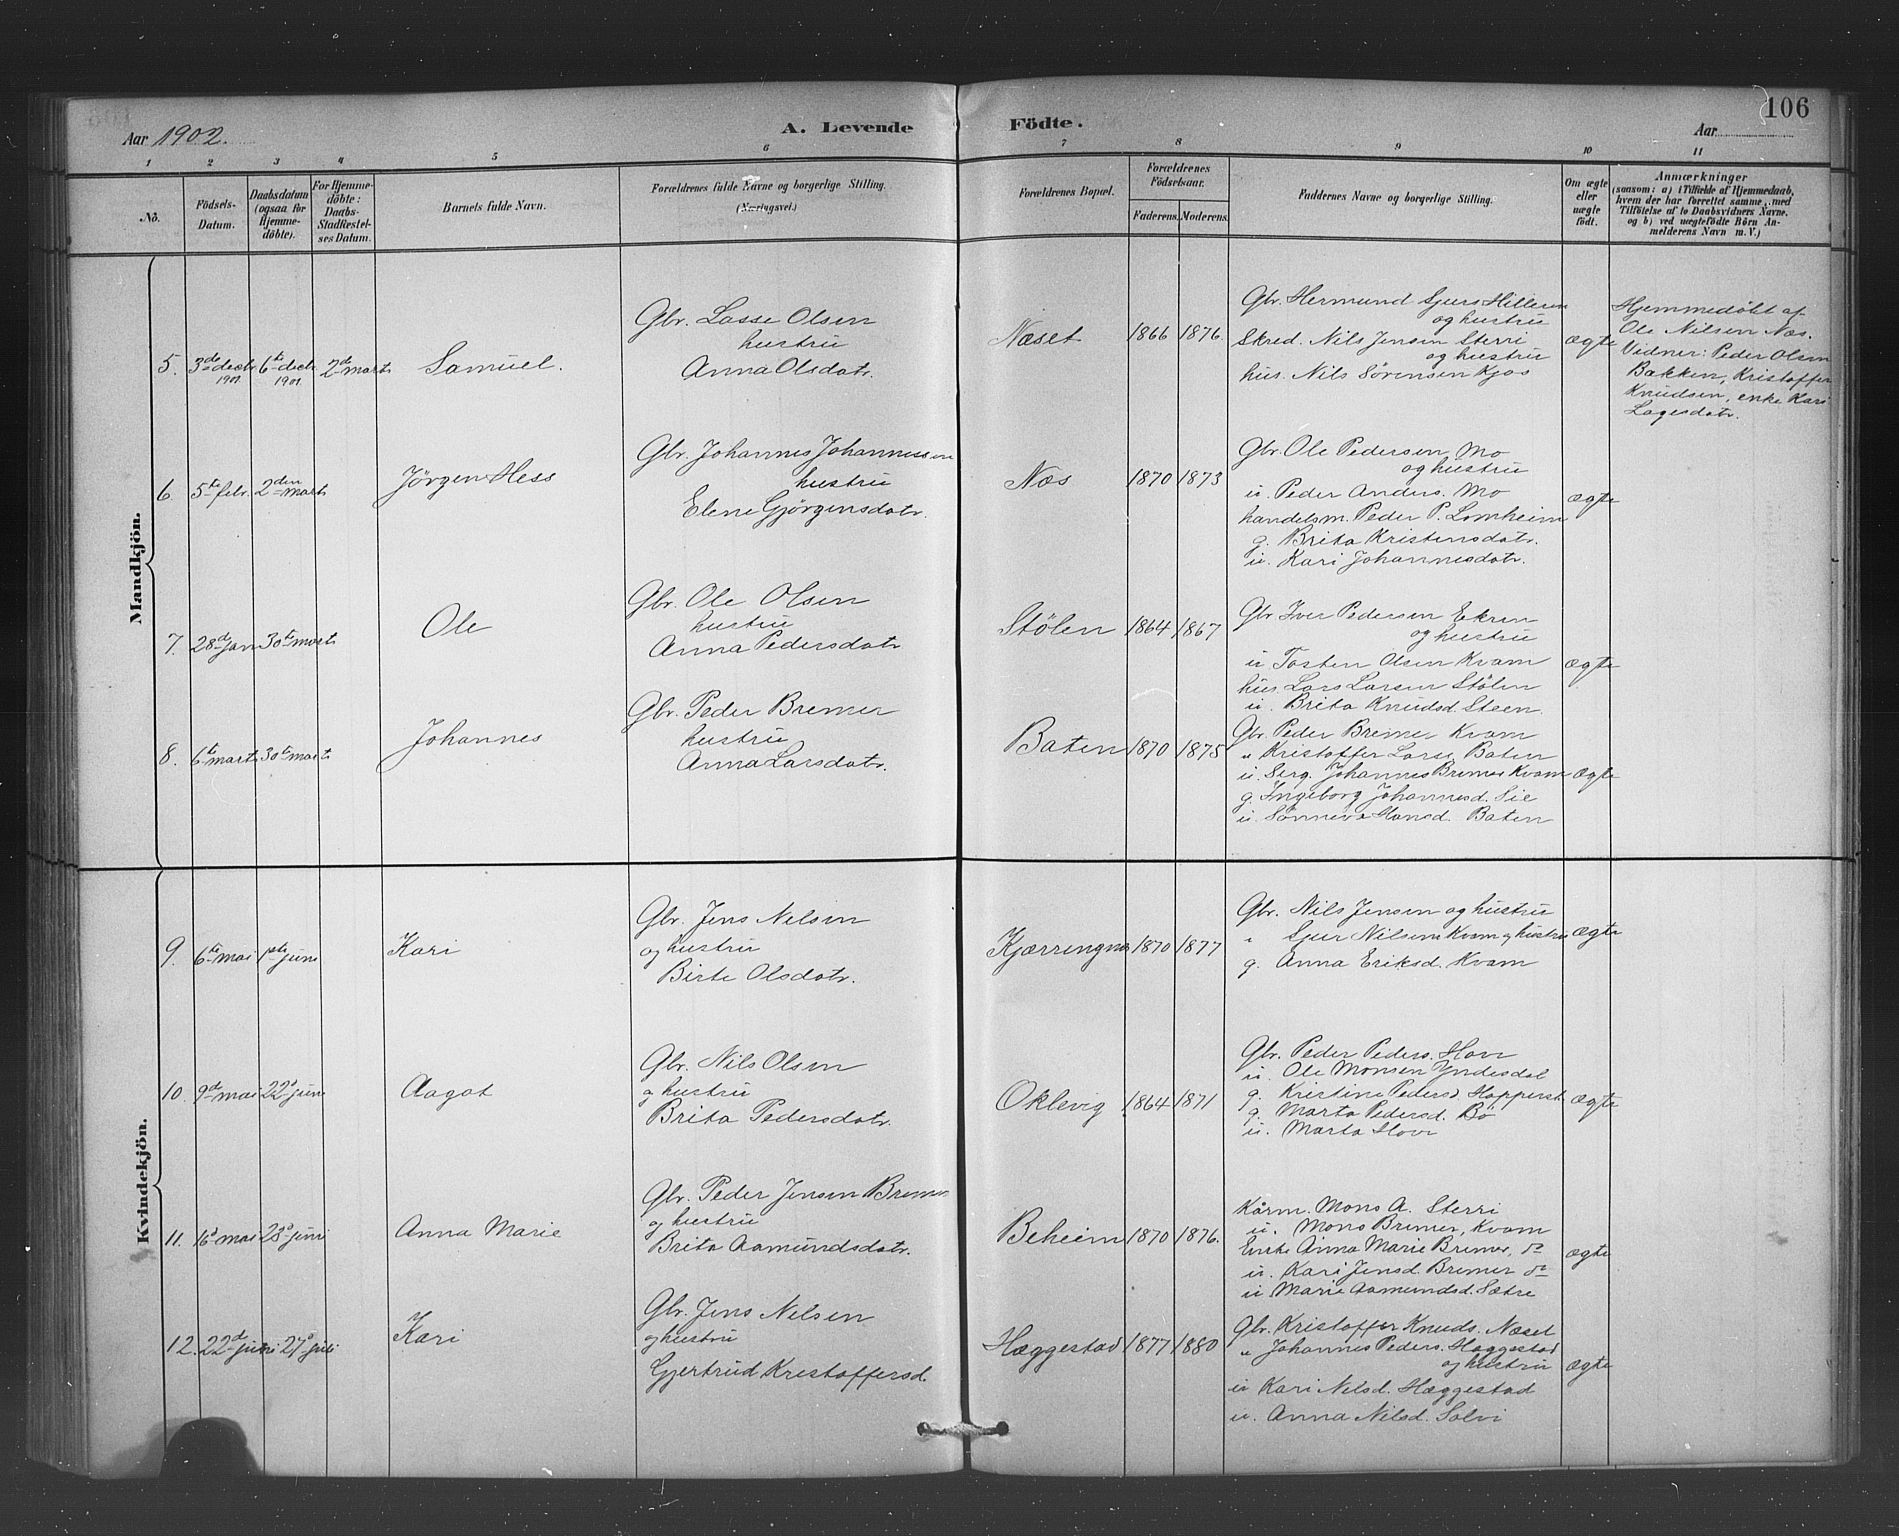 106
Aar 1902.
A. Levende Födte.
Aar
1 2 3 4 5 6 7 8 9 10 11
No.
Födsels-Datum.
Daabsdatum (ogsaa for Hjemme-döbte).
For Hjemme-döbte: Daabs-Stadfæstel-ses Datum.
Barnets fulde Navn.
Forældrenes fulde Navne og borgerlige Stilling.
(Næringsvei.)
Forældrenes Bopæl.
Forældrenes Födselsaar.
Faderens. Moderens.
Faddernes Navne og borgerlige Stilling.
Om ægte eller uægte födt.
Anmærkninger
(saasom: a) i Tilfælde af Hjemmedaab,
hvem der har forrettet samme, med
Tilföielse af to Daabsvidners Navne,
og b) ved uægtefödte Börn An-
melderens Navn m. V.)
Mandkjön.
5. 3de decbr. 1901 6te decbr. 1901 2de marts Samuel.
Gbr. Lasse Olsen
hustru
Anna Olsdatr.
Næset 1866 1876
Gbr. Hermund Sjurs Hilleren
og hustru
Skred. Nils Jensen Sterri
og hustru
hus. Nils Sörensen Kjos
ægte
Hjemmedöbt af
Ole Nilsen Næs.
Vidner: Peder Olsen
Bakken, Kristoffer
Knudsen, enke Kari
Lagesdatr.
6 5te febr. 2den marts Jörgen Hess
Gbr. Johannes Johannessen
hustru
Elene Gjörgensdatr.
Næs 1870 1873
Gbr. Ole Pedersen Mo
og hustru
u. Peder Anders. Mo
handelsm. Peder P. Lomheim
g. Brita Kristensdatr.
u. Kari Johannesdatr.
ægte
7. 28d jan 30te marts Ole
Gbr. Ole Olsen
hustru
Anna Pedersdatr
Stölen 1864 1867
Gbr Iver Pedersen Ekren
og hustru
u Tosten Olsen Kvam
hus Lars Larsen Stölen
u. Brita Knudsd. Steen
ægte
8. 6te marts 30te marts Johannes
Gbr. Peder Bremer
hustru
Anna Larsdatr.
Baten 1870 1875
Gbr. Peder Bremer Kvam
" Kristoffer Lars. Baten
u. Serg. Johannes Bremer Kvam
g. Ingeborg Johannesd. Sie
u. Sönneva Hansd. Baten
ægte
Kvindekjön.
9. 6te mai 1ste juni Kari
Gbr. Jens Nilsen
og hustru
Birte Olsdatr.
Kjærringnæs 1870 1877
Gbr. Nils Jensen og hustru
" Sjur Nilsen Kvam og hustru
g. Anna Eriksd. Kvam
ægte
10. 9d mai 22d juni Aagot
Gbr. Nils Olsen
og hustru
Brita Pedersdatr.
Oklevig 1864 1871
Gbr. Peder Peders. Hove
u. Ole Monsen Yndesdal
g. Kristine Pedersd Hopperst.
g. Marta Pedersd. Bö
u. Marta Hove
ægte
11. 16d mai 28d juni Anna Marie
Gbr. Peder Jensen Bremer
og hustru
Brita Aamundsdatr.
Beheim 1870 1876.
Kårm. Mons A. Sterri
u. Mons Bremer, Kvam
Enke Anna Marie Bremer, do
u. Kari Jensd. Bremer do
u Marie Aamundsd. Sætre
ægte
12. 22d juni 27d juli Kari
Gbr. Jens Nilsen
og hustru
Gjertrud Kristoffersd.
Hæggestad 1877 1880
Gbr. Kristoffer Knuds. Næset
" Johannes Peders. Hæggestad
og hustru
u Kari Nilsd. Hæggestad
u. Anna Nilsd. Solvi
ægte